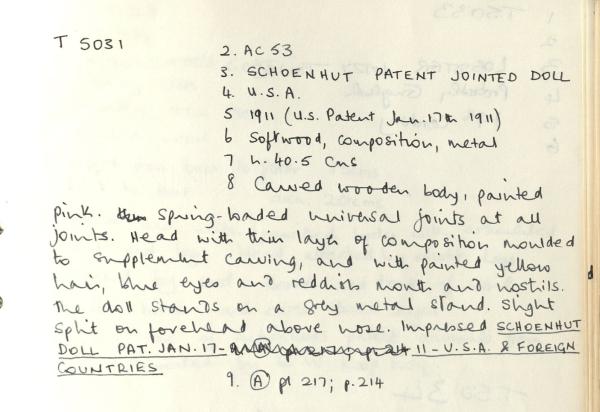 T 5031
2. AC 53
3. SCHOENHUT PATENT JOINTED DOLL
4. U.S.A.
5 1911 (U.S. Patent Jan. 17th 1911)
6 Softwood, composition, metal
7 h. 40.5 cms
8 Carved wooden body, painted
pink. Spring-loaded universal joints at all
joints. Head with thin layer of composition moulded
to supplement carving, and with painted yellow
hair, blue eyes and reddish mouth and nostrils.
The doll stands on a grey metal stand. Slight
split on forehead above nose. Impressed SCHOENHUT
DOLL PAT. JAN. 17- 11 - U.S.A. & FOREIGN
COUNTRIES
9. (A) pl 217; p. 214